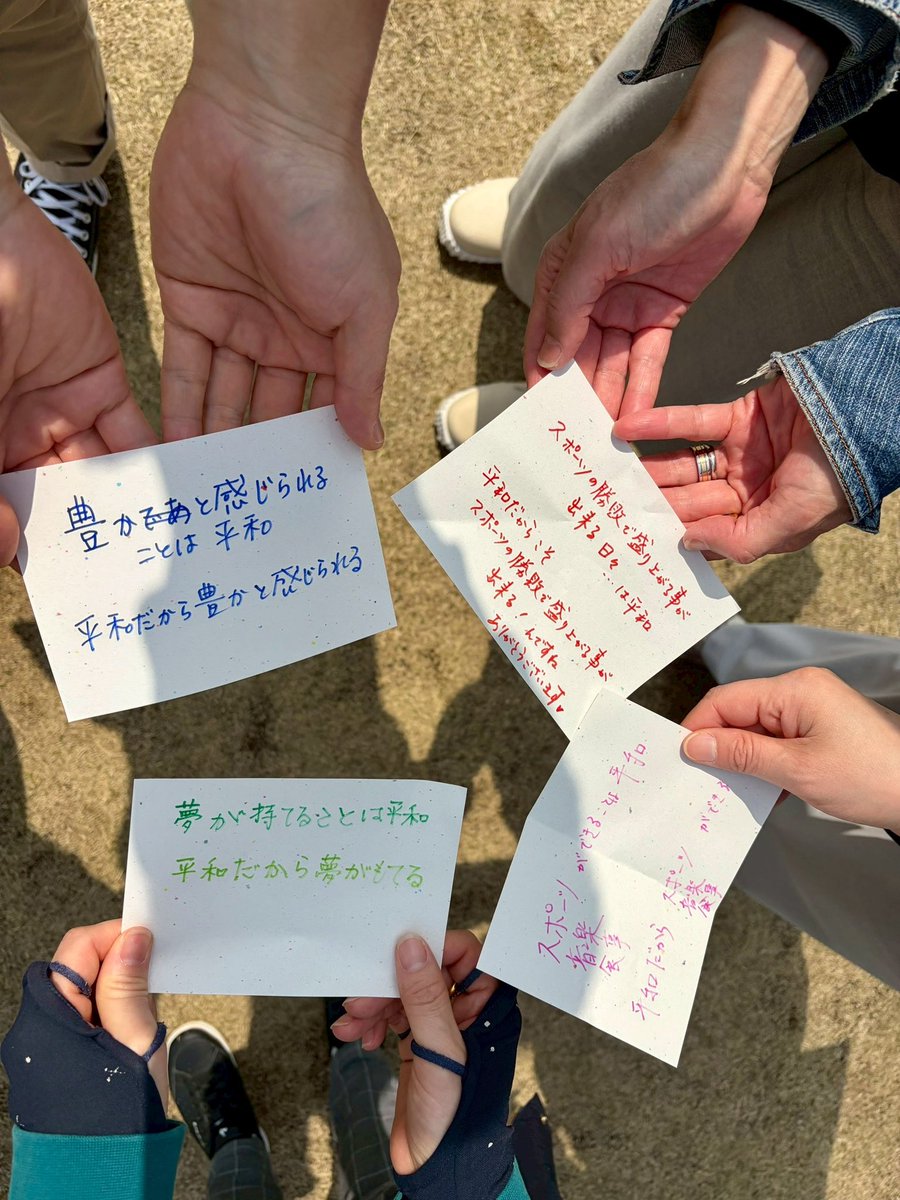 豊かと感じられる
ことは 平和
平和だから豊かと感じられる
スポーツの勝敗で盛り上がる事が
出来る日々…は平和
平和だからこそ
スポーツの勝敗で盛り上がる事が
出来る！んですね
ありがとうございます♥
夢が持てることは平和
平和だから夢がもてる
スポーツ
音楽
ができる
平和
平和だから
スポーツ
音楽
ができる